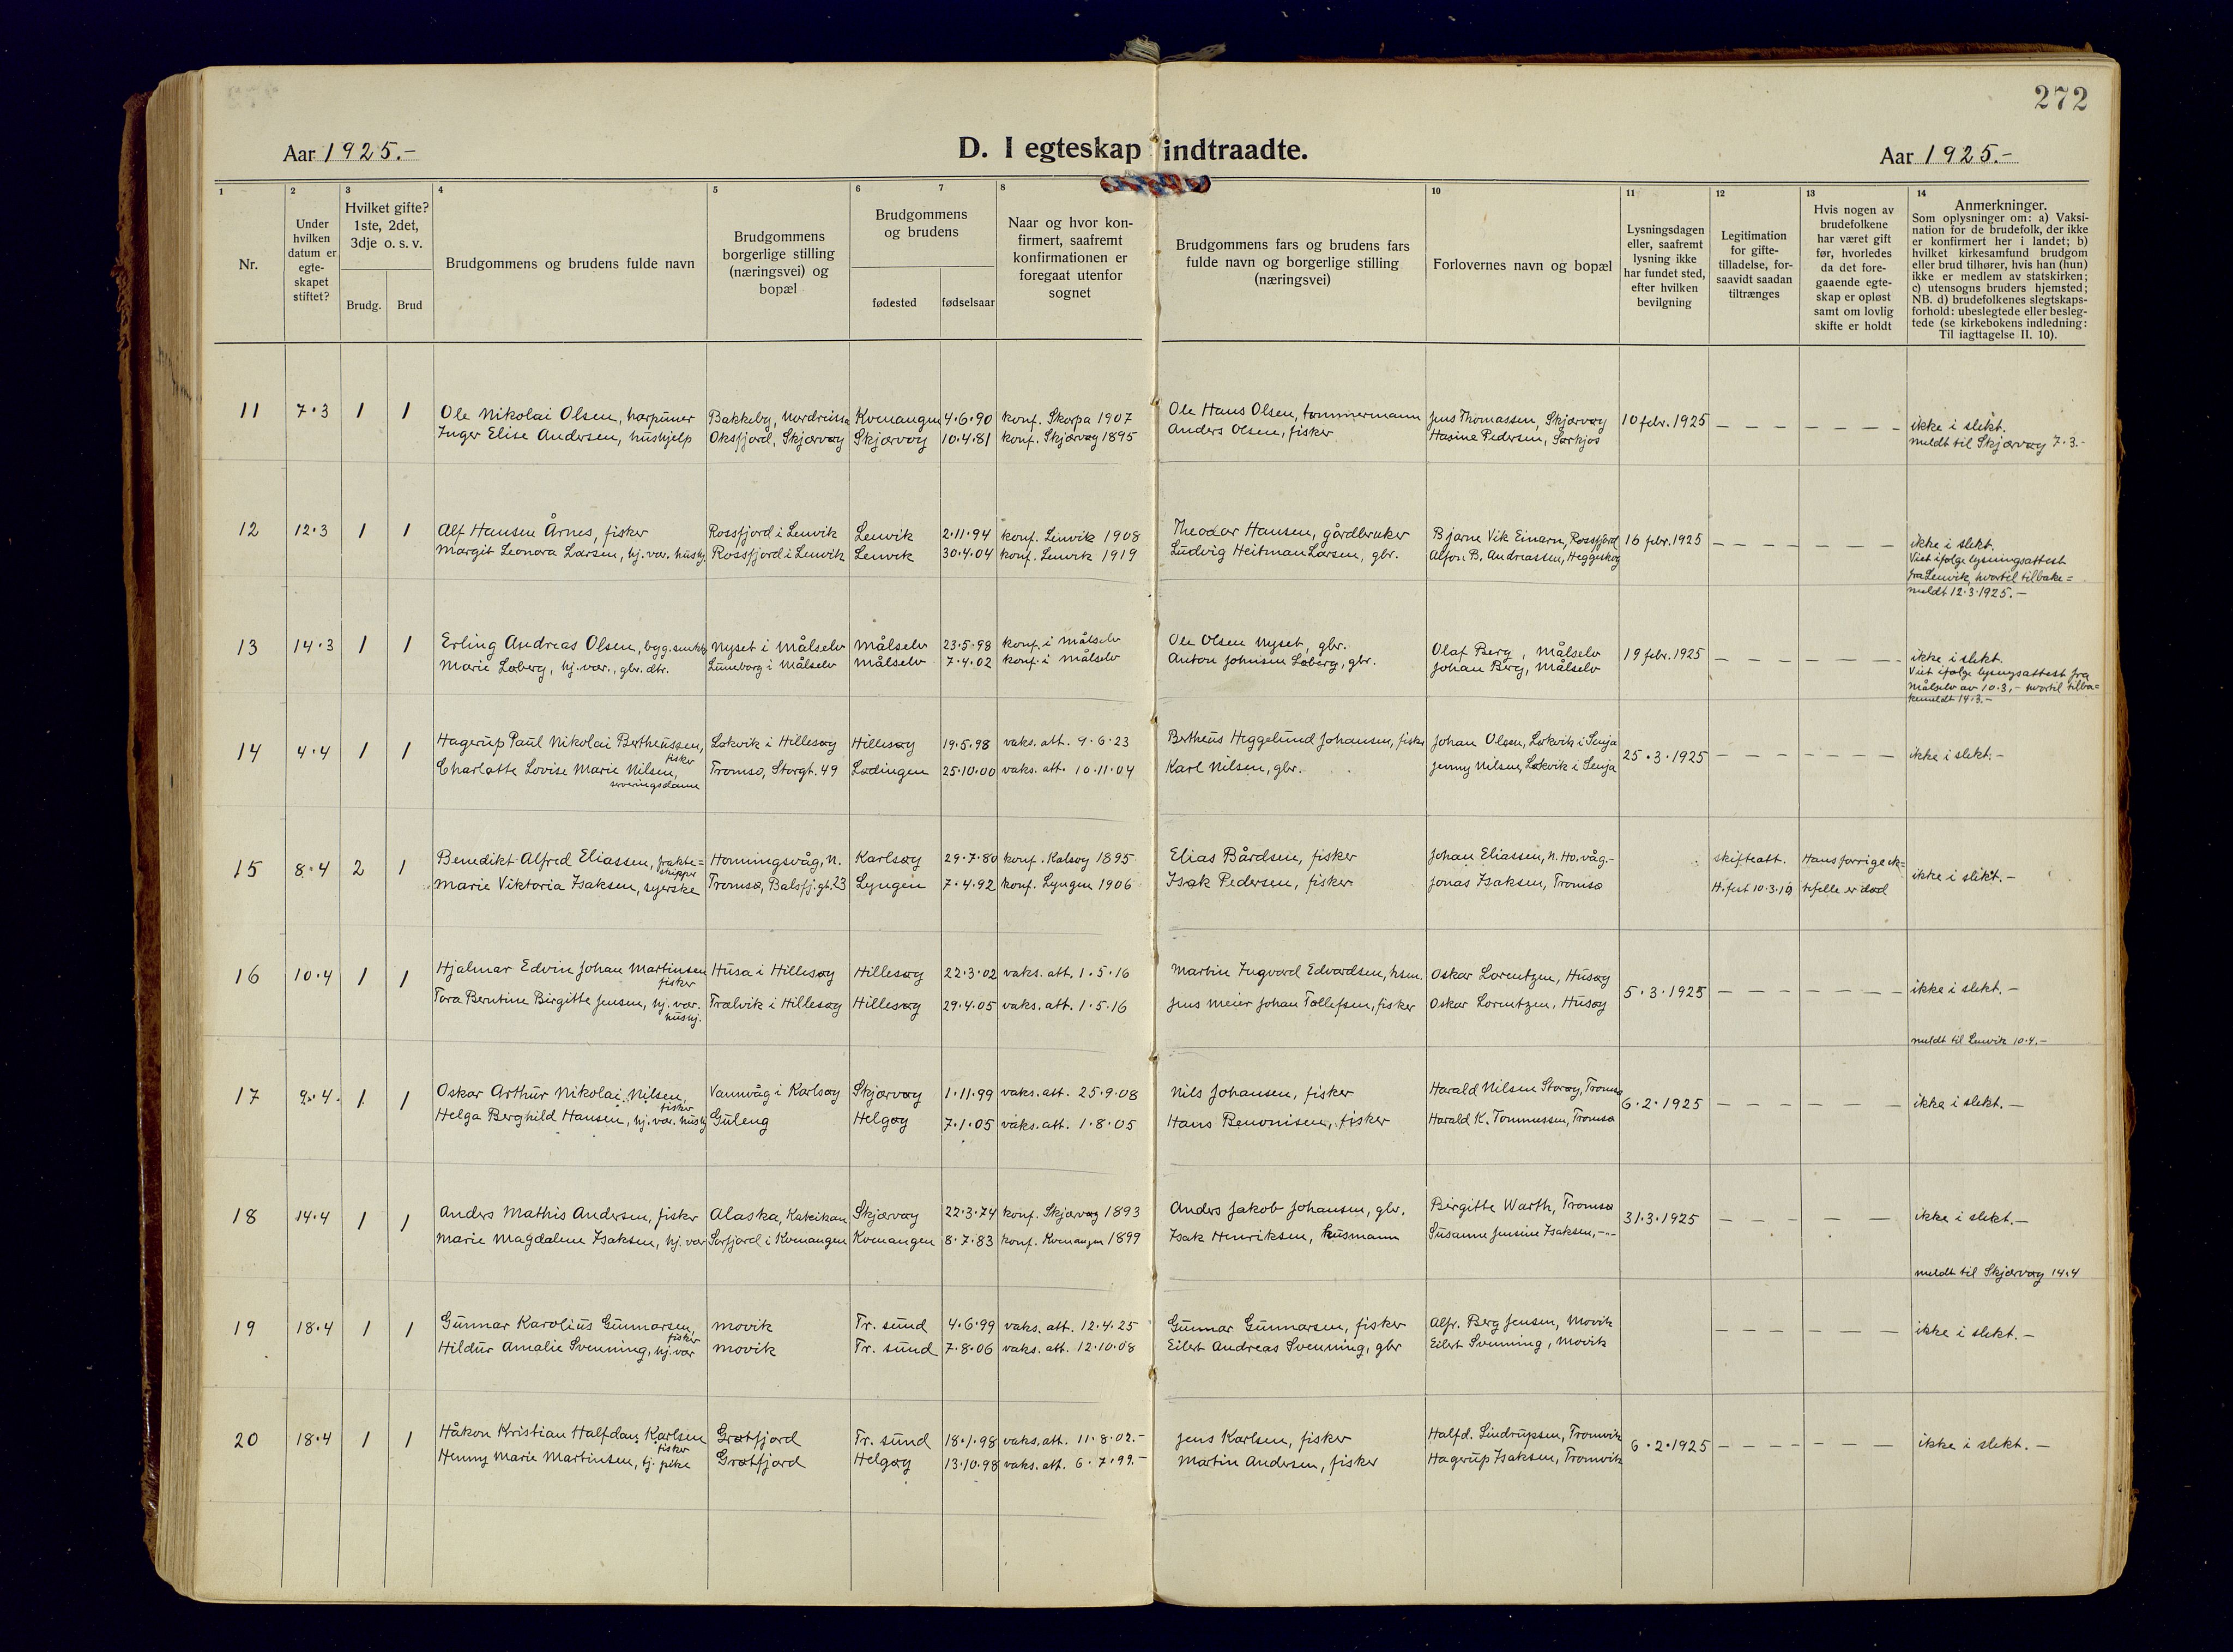 272
Aar 1925.-
D. I egteskap indtraadte.
Aar 1925.-
1 2 3 4 5 6 7 8 10 11 12 13 14
Nr.
Under hvilken datum er egte-skapet stiftet?
Hvilket gifte? 1ste, 2det, 3dje o. s. v.
Brudg. Brud
Brudgommens og brudens fulde navn
Brudgommens borgerlige stilling (næringsvei) og bopæl
Brudgommens og brudens
fødested fødselsaar
Naar og hvor kon-firmert, saafremt konfirmationen er foregaat utenfor sognet
Brudgommens fars og brudens fars fulde navn og borgerlige stilling (næringsvei)
Forlovernes navn og bopæl
Lysningsdagen eller, saafremt lysning ikke har fundet sted, efter hvilken bevilgning
Legitimation for gifte-tilladelse, for-saavidt saadan tiltrænges
Hvis nogen av brudefolkene har været gift før, hvorledes da det fore-gaaende egte-skap er opløst samt om lovlig skifte er holdt
Anmerkninger.
Som oplysninger om: a) Vaksi-nation for de brudefolk, der ikke er konfirmert her i landet; b) hvilket kirkesamfund brudgom eller brud tilhører, hvis han (hun) ikke er medlem av statskirken; c) utensogns bruders hjemsted; NB. d) brudefolkenes slegtskaps-forhold: ubeslegtede eller besleg-tede (se kirkebokens indledning: Til iagttagelse II. 10).
11 7.3 1 1 Ole Nikolai Olsen, harpuner Bakkeby, Nordreisa Kvænangen 4.6.90 konf. Skorpa 1907 Ole Hans Olsen, tømmermann Jens Thomassen, Skjærvøy 10 febr. 1925 — — — — — — — ikke i slekt.
Inger Elise Andersen, hushjelp Oksfjord, Skjærvøy Skjærvøy 10.4.81 konf. Skjærvøy 1895 Anders Olsen, fisker Hasine Pedersen, Sørkjos meldt til Skjærvøy 7.3.-
12 12.3 1 1 Alf Hansen Årnes, fisker Rossfjord i Lenvik Lenvik 2.11.94 konf. Lenvik 1908 Theodor Hansen, gårdbruker Bjarne Vik Einarn, Rossfjord 16 febr. 1925 — — — — — — ikke i slekt.
Margit Leonora Larsen, hj. vær. hushj. Rossfjord i Lenvik Lenvik 30.4.04 konf. Lenvik 1919 Ludvig Heitman Larsen, gbr. Alfon B. Andreassen, Heggeskog
Viet ifølge lysningsattest
fra Lenvik, hvortil tilbake=
meldt 12.3.1925.-
13 14.3 1 1 Erling Andreas Olsen, byg.snekk. Nyset i Målselv Målselv 23.5.98 konf. i Målselv Ole Olsen Nyset, gbr. Olaf Berg, Målselv 19 febr. 1925 — — — — — — — ikke i slekt.
Marie Løberg, hj. vær., gbr. dtr. Luneborg i Målselv Målselv 7.4.02 konf. i Målselv Anton Johnsen Løberg, gbr. Johan Berg, Målselv
Viet ifølge lysingsattest fra
Målselv av 10.3,- hvortil tilba-
kemeldt 14.3.-
14 4.4 1 1 Hagerup Paul Nikolai Bertheussen, fisker Løkvik i Hillesøy Hillesøy 19.5.98 vaks. att. 9.6.23 Bertheus Heggelund Johansen, fisker Johan Olsen, Løkvik i Senja 25.3.1925 — — — — — — — ikke i slekt.-
Charlotte Lovise Marie Nilsen, serveringsdame Tromsø, Storgt. 49 Lødingen 25.10.00 vaks. att. 10.11.04 Karl Nilsen, gbr. Jenny Nilsen, Løkvik i Senja
15 8.4 2 1 Benedikt Alfred Eliassen, frakte=skipper Honningsvåg, N. Karlsøy 29.7.80 konf. Kalsøy 1895 Elias Bårdsen, fisker Johan Eliassen, N. Ho.våg.- skifteatt. Hans forrige ek= ikke i slekt.-
Marie Viktoria Isaksen, syerske Tromsø, Balsfj.gt. 23 Lyngen 7.4.92 konf. Lyngen 1906 Isak Pedersen, fisker Jonas Isaksen, Tromsø H.fest 10.3.19 tefelle er død
16 10.4 1 1 Hjalmar Edvin Johan Martinsen fisker Husø i Hillesøy Hillesøy 22.3.02 vaks. att. 1.5.16 Martin Ingvard Edvardsen, hsm. Oskar Lorentzen, Husøy 5.3.1925 — — — — — — — ikke i slekt.-
Tora Berntine Birgitte Jensen, hj. vær. hushj. Trælvik i Hillesøy Hillesøy 29.4.05 vaks. att. 1.5.16 Jens Meier Johan Tollefsen, fisker Oskar Lorentzen, Husøy
meldt til Lenvik 10.4.-
17 9.4. 1 1 Oskar Arthur Nikolai Nilsen, fisker Vannvåg i Karlsøy Skjærvøy 1.11.99 vaks. att. 25.9.08 Nils Johansen, fisker Harald Nilsen Storøy, Tromsø 6.2.1925 — — — — — — ikke i slekt.-
Helga Berghild Hansen, hj. vær. hushj. Guleng Helgøy 7.1.05 vaks. att. 1.8.05 Hans Benonisen, fisker Harald K. Tommessen, Tromsø
18 14.4 1 1 Anders Mathis Andersen, fisker Alaska, Katcikan Skjærvøy 22.3.74 konf. Skjærvøy 1893 Anders Jakob Johansen, gbr. Birgitte Warth, Tromsø 31.3.1925 — — — — — ikke i slekt.-
Marie Magdalene Isaksen, hj. vær Sørfjord i Kvænangen Kvænangen 8.7.83 konf. Kvænangen 1899 Isak Henriksen, husmann Susanne Jensine Isaksen, -"-
meldt til Skjærvøy 14.4
19 18.4 1 1 Gunnar Karolius Gunnarsen, fisker Movik Tr. sund 4.6.99 vaks. att. 12.4.25 Gunnar Gunnarsen, fisker Alfr. Berg Jensen, Movik — — — — — — ikke i slekt.-
Hildur Amalie Svenning, hj. vær Movik Tr. sund 7.8.06 vaks. att. 12.10.08 Eilert Andreas Svenning, gbr Eilert Svenning, Movik
20 18.4 1 1 Håkon Kristian Halfdan Karlsen fisker Grøtfjord Tr. sund 18.1.98 vaks. att. 11.8.02.- Jens Karlsen, fisker Halfd. Lindrupsen, Tromvik 6.2.1925 — — — — — — — ikke i slekt.-
Henny Marie Martinsen, tj. pike Grøtfjord Helgøy 13.10.98 vaks. att. 6.7.99.- Martin Andersen, fisker Hagerup Isaksen, Tromvik